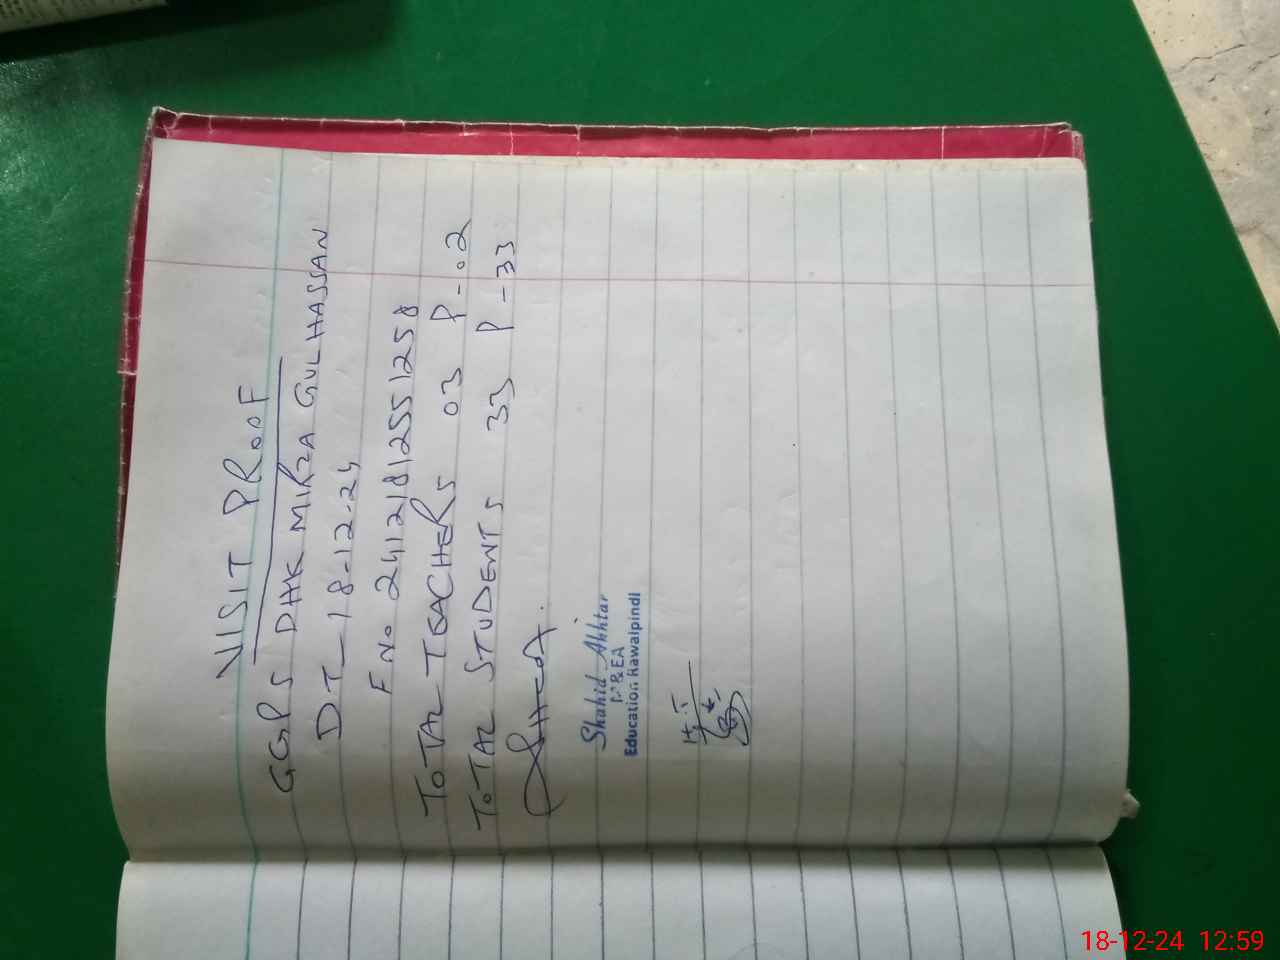 VISIT PROOF
GGPS DHK MIRZA GULHASSAN
DT_18-12-24
F No 24121812551258
TOTAL TEACHERS 03 P-02
TOTAL STUDENTS 33 P-33
Shahid Akhtar
M&EA
Education Rawalpindi
18-12-24 12:59